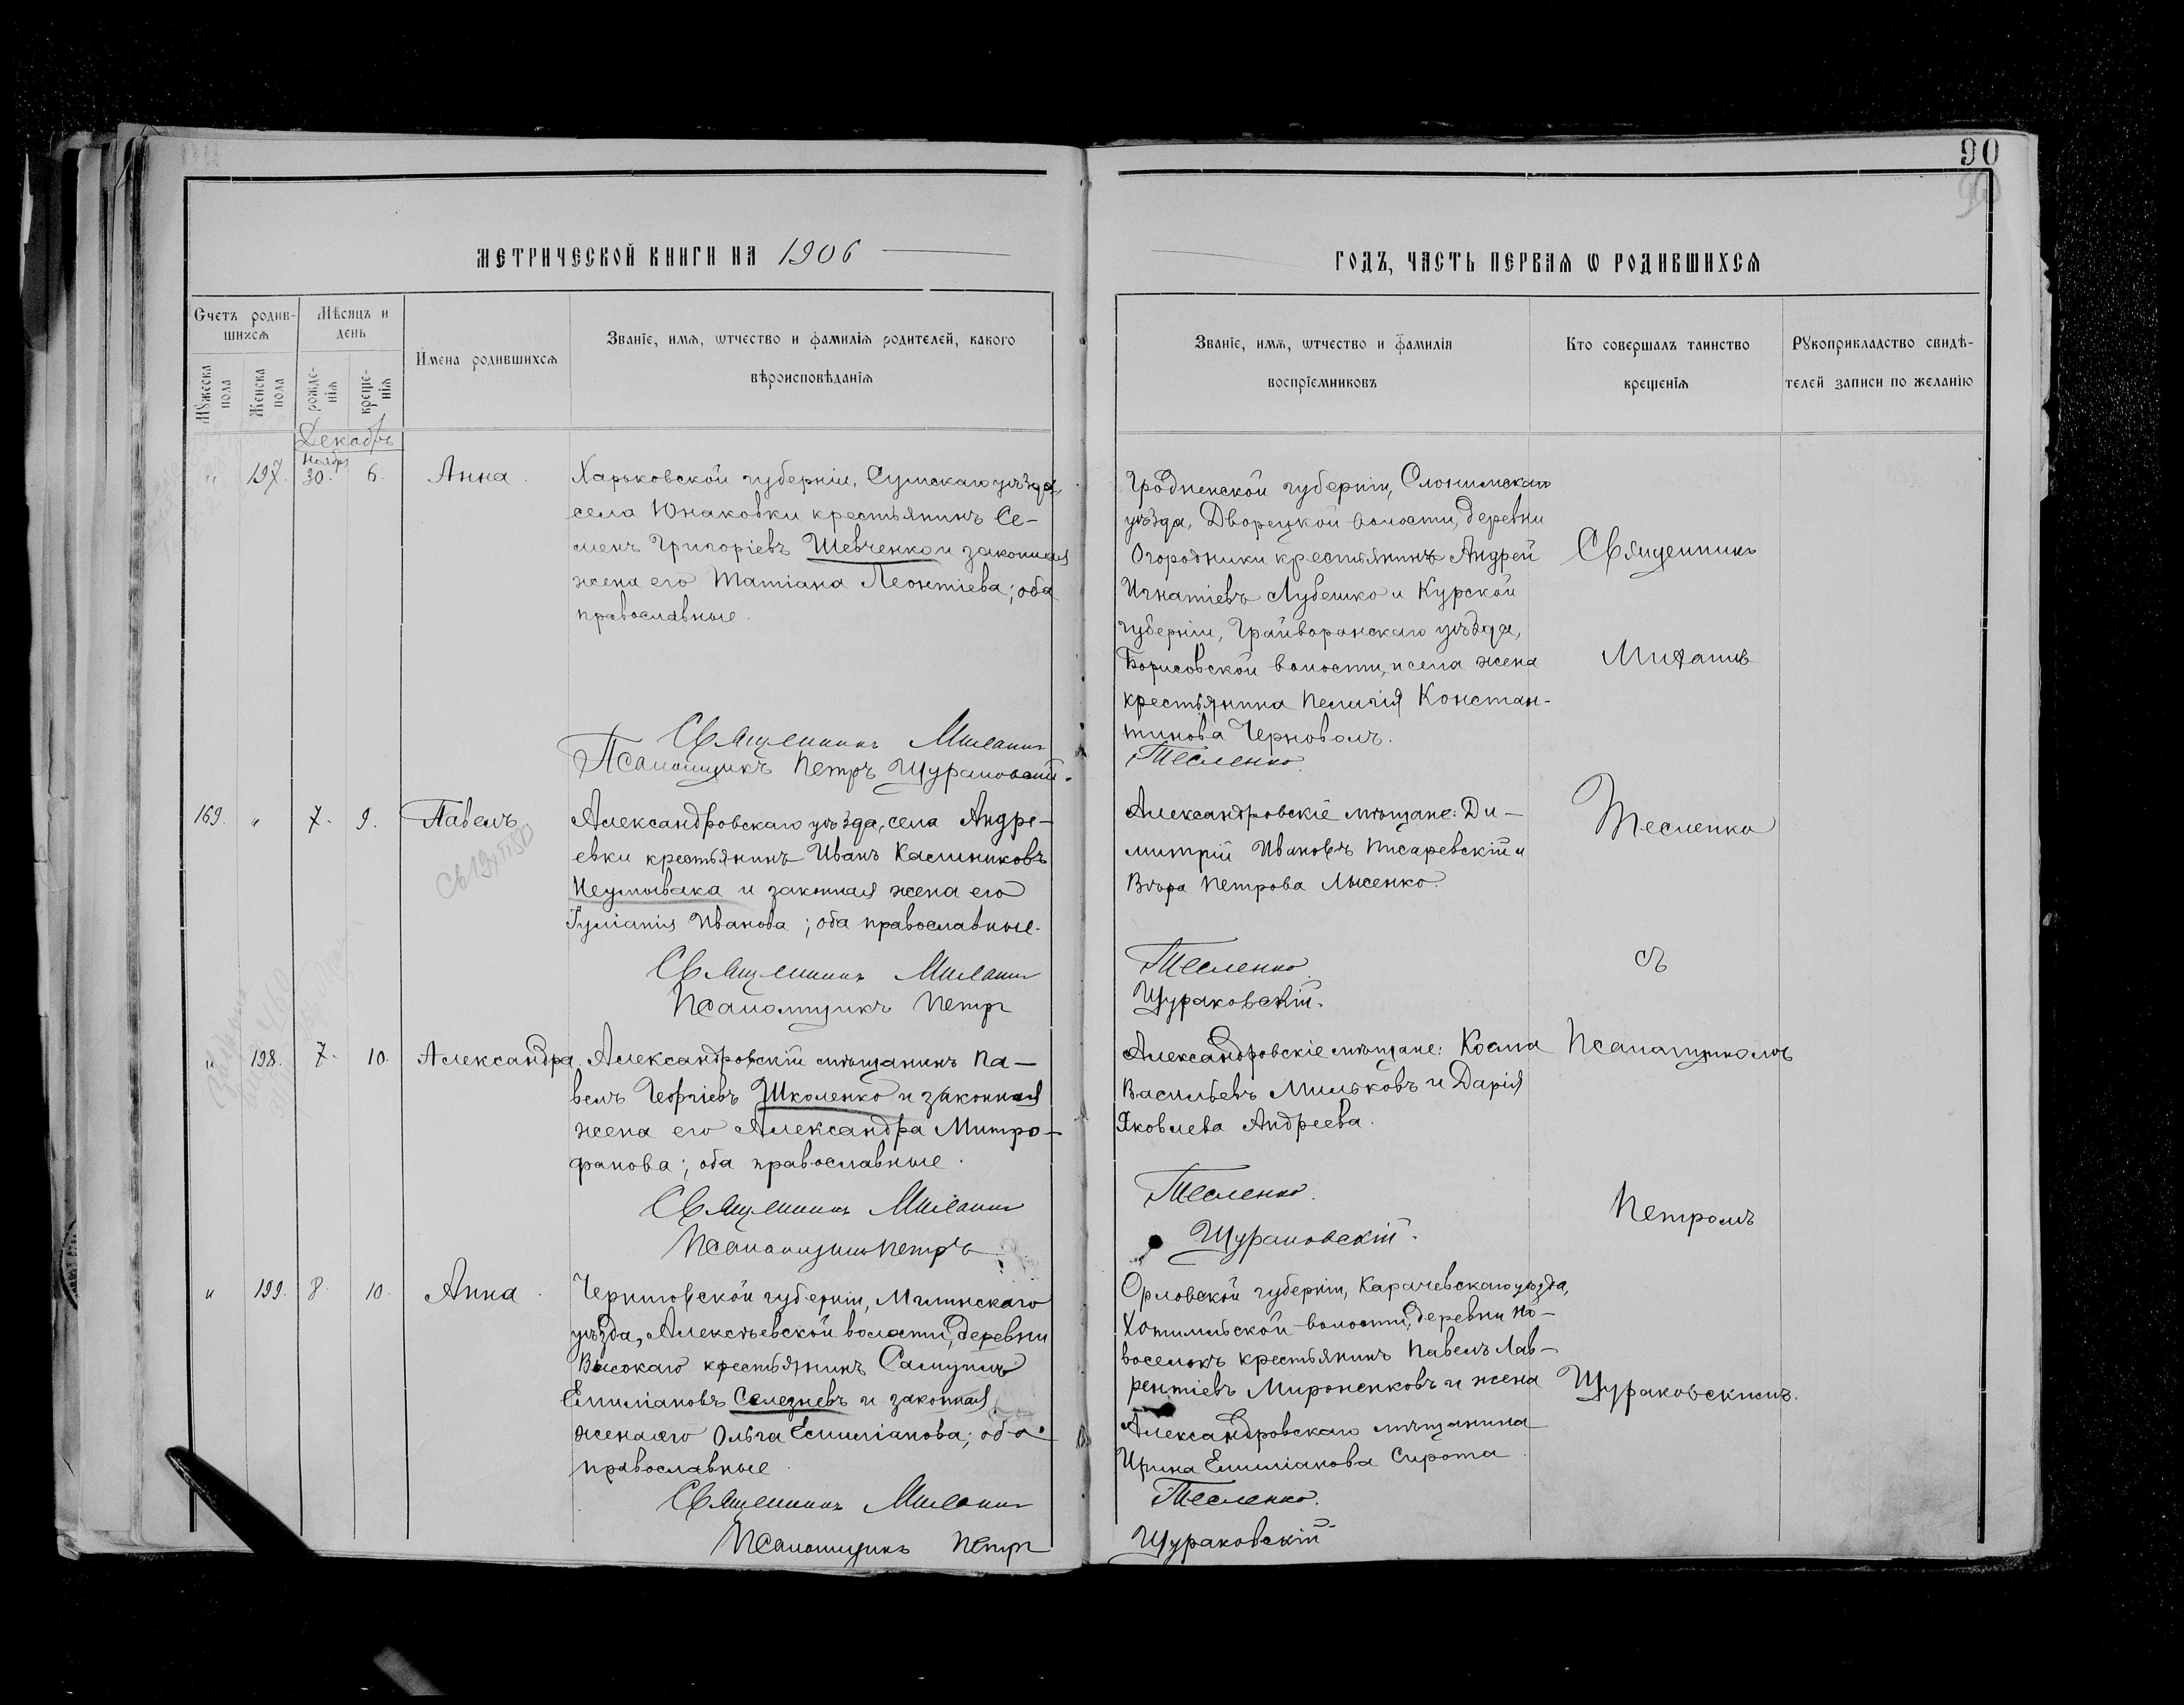 90
90
МЕТРИЧЕСКОЙ КНИГИ НА 1906
ГОДЪ, ЧАСТЬ ПЕРВАЯ Ѡ РОДИВШИХСЯ
Счетъ родив-
шихся
Мѣсяцъ и
день
Мужеска
пола
Женска
пола
рожде-
нія
креще-
нія
Имена родившихся
Званіе, имя, ѿтчество и фамилія родителей, какого
вѣроисповѣданія
Званіе, имя, ѿтчество и фамилія
воспріемниковъ
Кто совершалъ таинство
крещенія
Рукоприкладство свидѣ-
телей записи по желанію
Декабрь
Ноября
„ 197. 30. 6. Анна.
Харьковской губерніи, Сумскаго уѣзда,
села Юнаковки крестьянинъ Се-
менъ Григоріевъ Шевченко и законная
жена его Татіана Леонтіева; оба
православные.
Священникъ Михаилъ
Псаломщикъ Петръ Щураковскій.
Гродненской губерніи, Слонимскаго
уѣзда, Дворецкой волости, деревни
Огородники крестьянинъ Андрей
Игнатіевъ Лубешко и Курской
губерніи, Грайворонскаго уѣзда,
Борисовской волости, и села жена
крестьянина Пелагія Констан-
тинова Черноволъ.
Тесленко.
Священникъ
Михаилъ
Тесленко
съ
Псаломщикомъ
Петромъ
Щураковскимъ.
169. „ 7. 9. Павелъ.
Александровскаго уѣзда, села Андре-
евки крестьянинъ Иванъ Каллиниковъ
Неумывака и законная жена его
Іуліанія Иванова; оба православные.
Священникъ Михаилъ
Псаломщикъ Петръ
Александровскіе мѣщане: Ди-
митрій Ивановъ Писаревскій и
Вѣра Петрова Лысенко.
Тесленко.
Щураковскій.
„ 198. 7. 10. Александра.
Александровскій мѣщанинъ Па-
велъ Георгіевъ Школенко и законная
жена его Александра Митро-
фанова; оба православные.
Священникъ Михаилъ
Псаломщикъ Петръ
Александровскіе мѣщане: Косма
Васильевъ Мильковъ и Дарія
Яковлева Андреева.
Тесленко.
Щураковскій.
„ 199. 8. 10. Анна.
Черниговской губерніи, Мглинскаго
уѣзда, Алексѣевской волости, деревни
Высокаго крестьянинъ Самуилъ
Емиліановъ Селезневъ и законная
жена его Ольга Емиліанова; оба
православные.
Священникъ Михаилъ
Псаломщикъ Петръ
Орловской губерніи, Карачевскаго уѣзда,
Хотимльской волости, деревни Но-
воселокъ крестьянинъ Павелъ Лав-
рентіевъ Мироненковъ и жена
Александровскаго мѣщанина
Ирина Емиліанова Сирота.
Тесленко.
Щураковскій